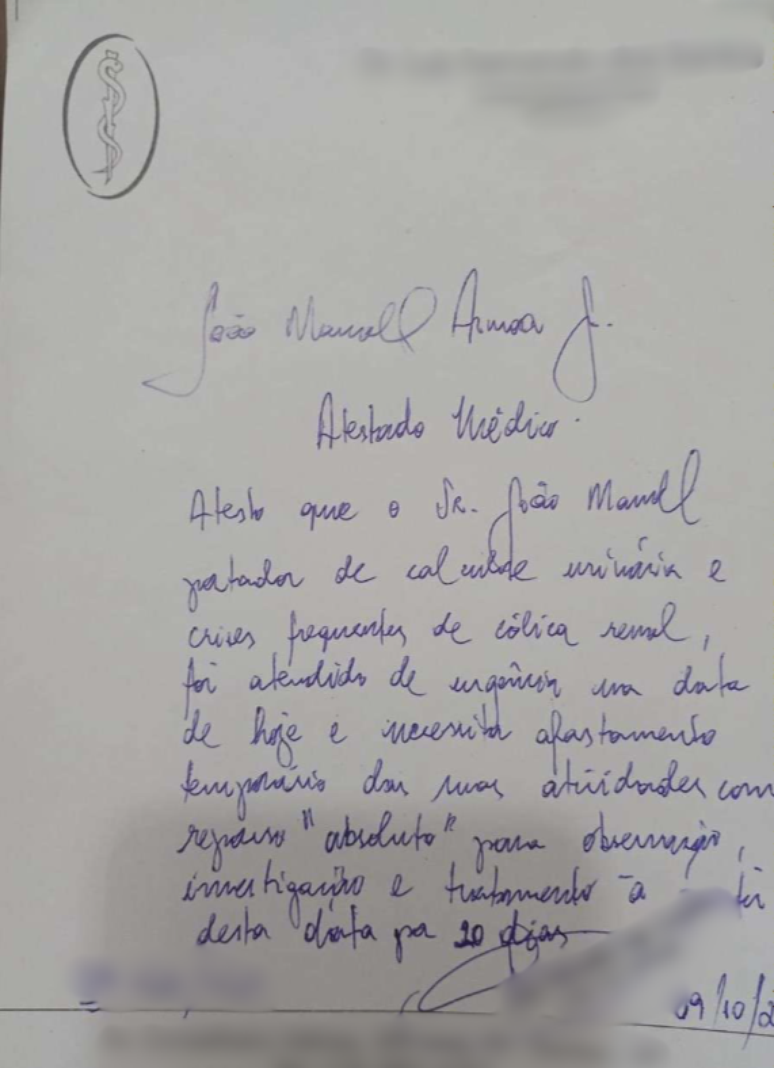 João Manoell Armoa J.
Atestado Médico.
Atesto que o Sr. João Manoell
portador de calculose urinária e
crises frequentes de cólica renal,
foi atendido de urgência na data
de hoje e necessita afastamento
temporário das suas atividades com
repouso "absoluto" para observação,
investigação e tratamento a
desta data por 20 dias
09/10/2